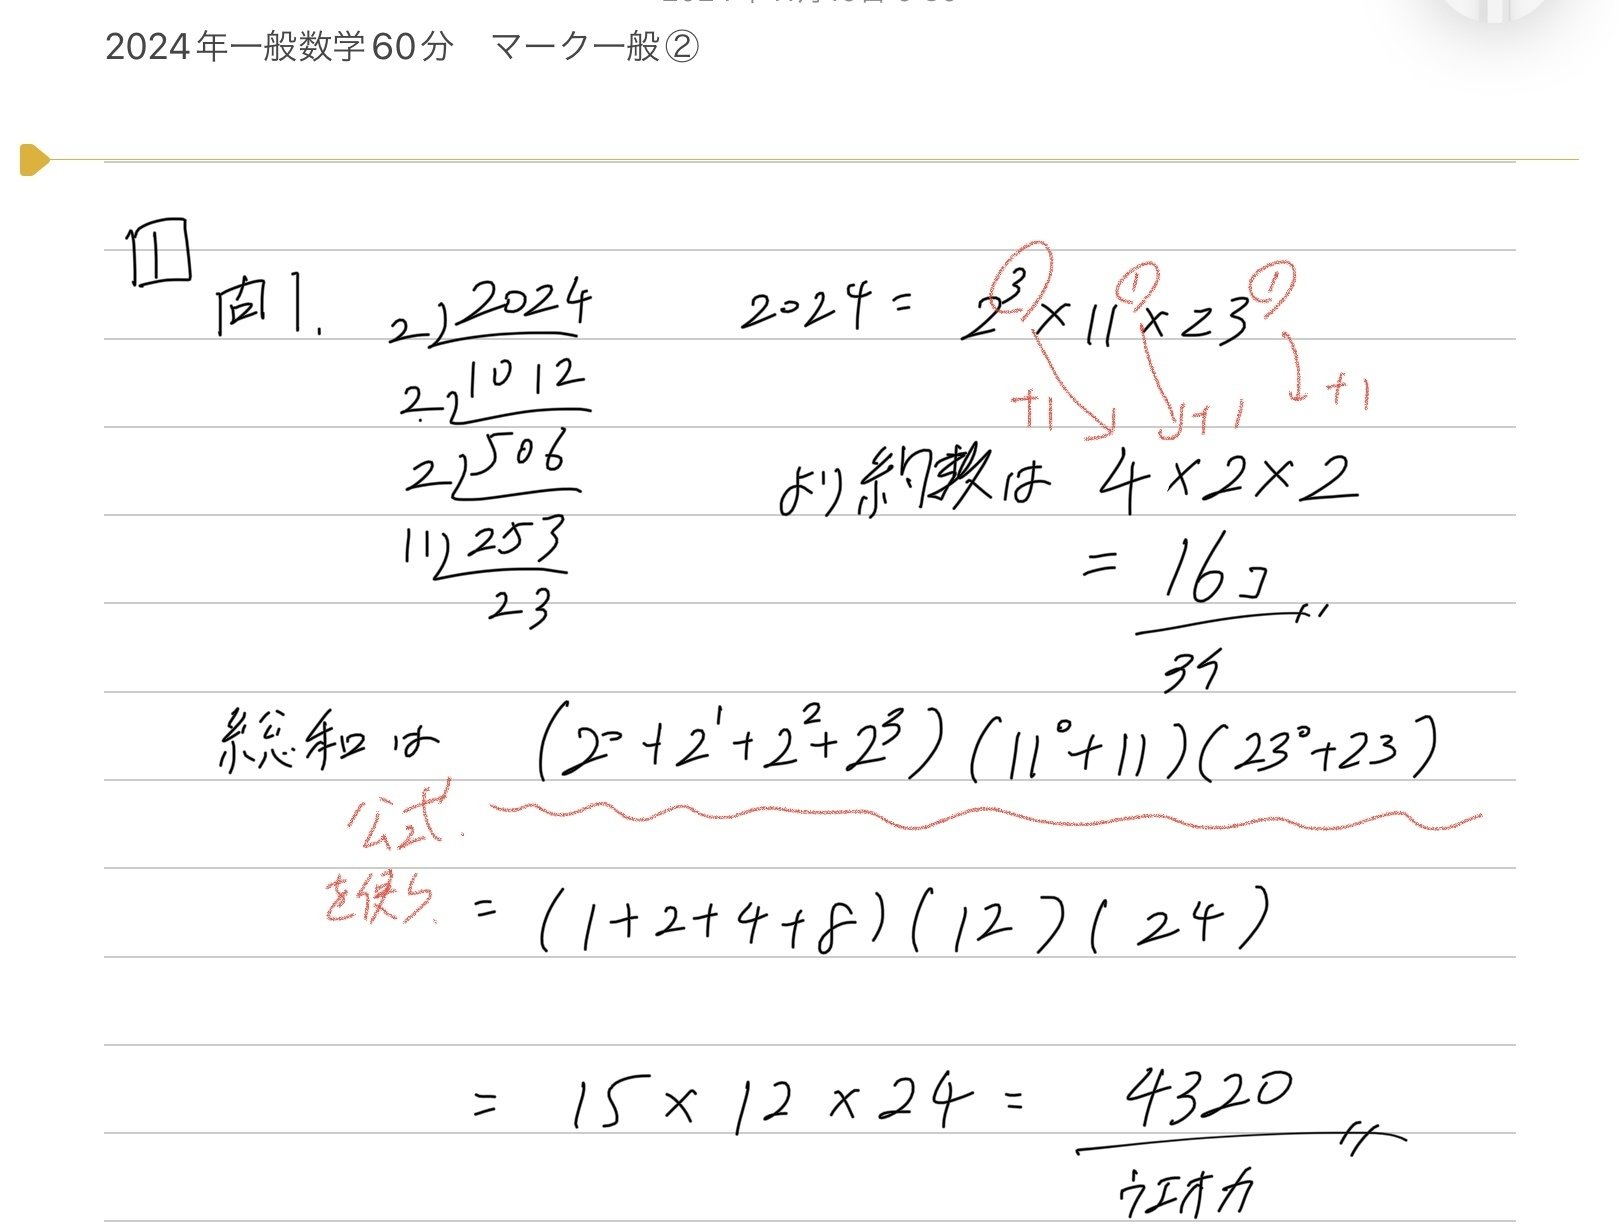 2024年一般数学60分　マーク一般②
1
問1.
2)2024
2)1012
2)506
11)253
23
2024 = 2³×11¹×23¹
+1 +1 +1
より約数は 4×2×2
= 16コ
総和は (2⁰+2¹+2²+2³)(11⁰+11)(23⁰+23)
公式
を使う
= (1+2+4+8)(12)(24)
= 15×12×24 = 4320
ウエオカ